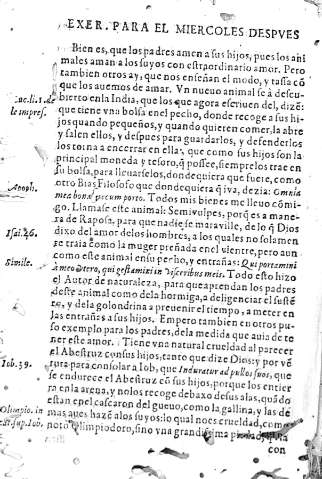 EXER. PARA EL MIERCOLES DESPVES
Bien es, que los padres amen a sus hijos, pues los ani
males aman a los suyos con estraordinario amor. Pero
tambien otros ay, que nos enseñan el modo, y tassa cõ
que los auemos de amar. Vn nueuo animal se à descu-
bierto en la India, que los que agora escriuen del, dizẽ:
que tiene vna bolsa en el pecho, donde recoge a sus hi-
jos quando pequeños, y quando quieren comer, la abre
y salen ellos, y despues para guardarlos, y defenderlos
los torna a encerrar en ella, que como sus hijos son la
principal moneda y tesoro, q̃ possee, siemprelos trae en
su bolsa, para lleuarselos, dondequiera que fuere, como
otro Bias Filosofo que dondequiera q̃ iva, dezia: Omnia
mea bona mecum porto. Todos mis bienes me lleuo cõmi-
go. Llamase este animal: Semivulpes, porq̃ es a mane-
ra de Raposa, para que nadie se marauille, de lo q̃ Dios
dixo del amor delos hombres, a los quales no solamen
te traia como la muger preñada en el vientre, pero aun
como este animal en su pecho, y entrañas: Qui portamini
à meo vtero, qui gestamini in visceribus meis. Todo esto hizo
el Autor de naturaleza, para que aprendan los padres
deste animal como dela hormiga, a deligenciar el susté
to, y dela golondrina a preuenir el tiempo, a meter en
las entrañas a sus hijos. Empero tambien en otros pu-
so exemplo para los padres, dela medida que auia de te
ner este amor. Tiene vna natural crueldad al parecer
el Abestruz con sus hijos, tanto que dize Dios, por vẽ
tura para consolar a Iob, que Induratur ad pullos suos, que
se endurece el Abestruz cõ sus hijos, porque los entier
ra en la arena, y no los recoge debaxo de sus alas, quãdo
estan en el cascaron del gueuo, como la gallina, y las de
mas aues hazẽ alos suyos: lo qual no es crueldad, como
notò Olimpiodoro, sino vna grandissima
con
Luc. li. 1. de
le impres.
Apoph.
Isai. 46.
Simile.
Iob. 39.
Olimpio. in
cat. sup. Iob.